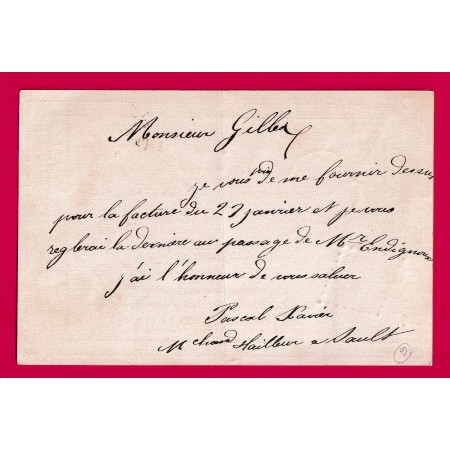 Monsieur Gilles
je vous prie de me fournir dessus
pour la facture du 27 janvier et je vous
reglerai la derniere au passage de Mr
j'ai l'honneur de vous saluer
Pascal Xavier
Mchand Tailleur a Sault